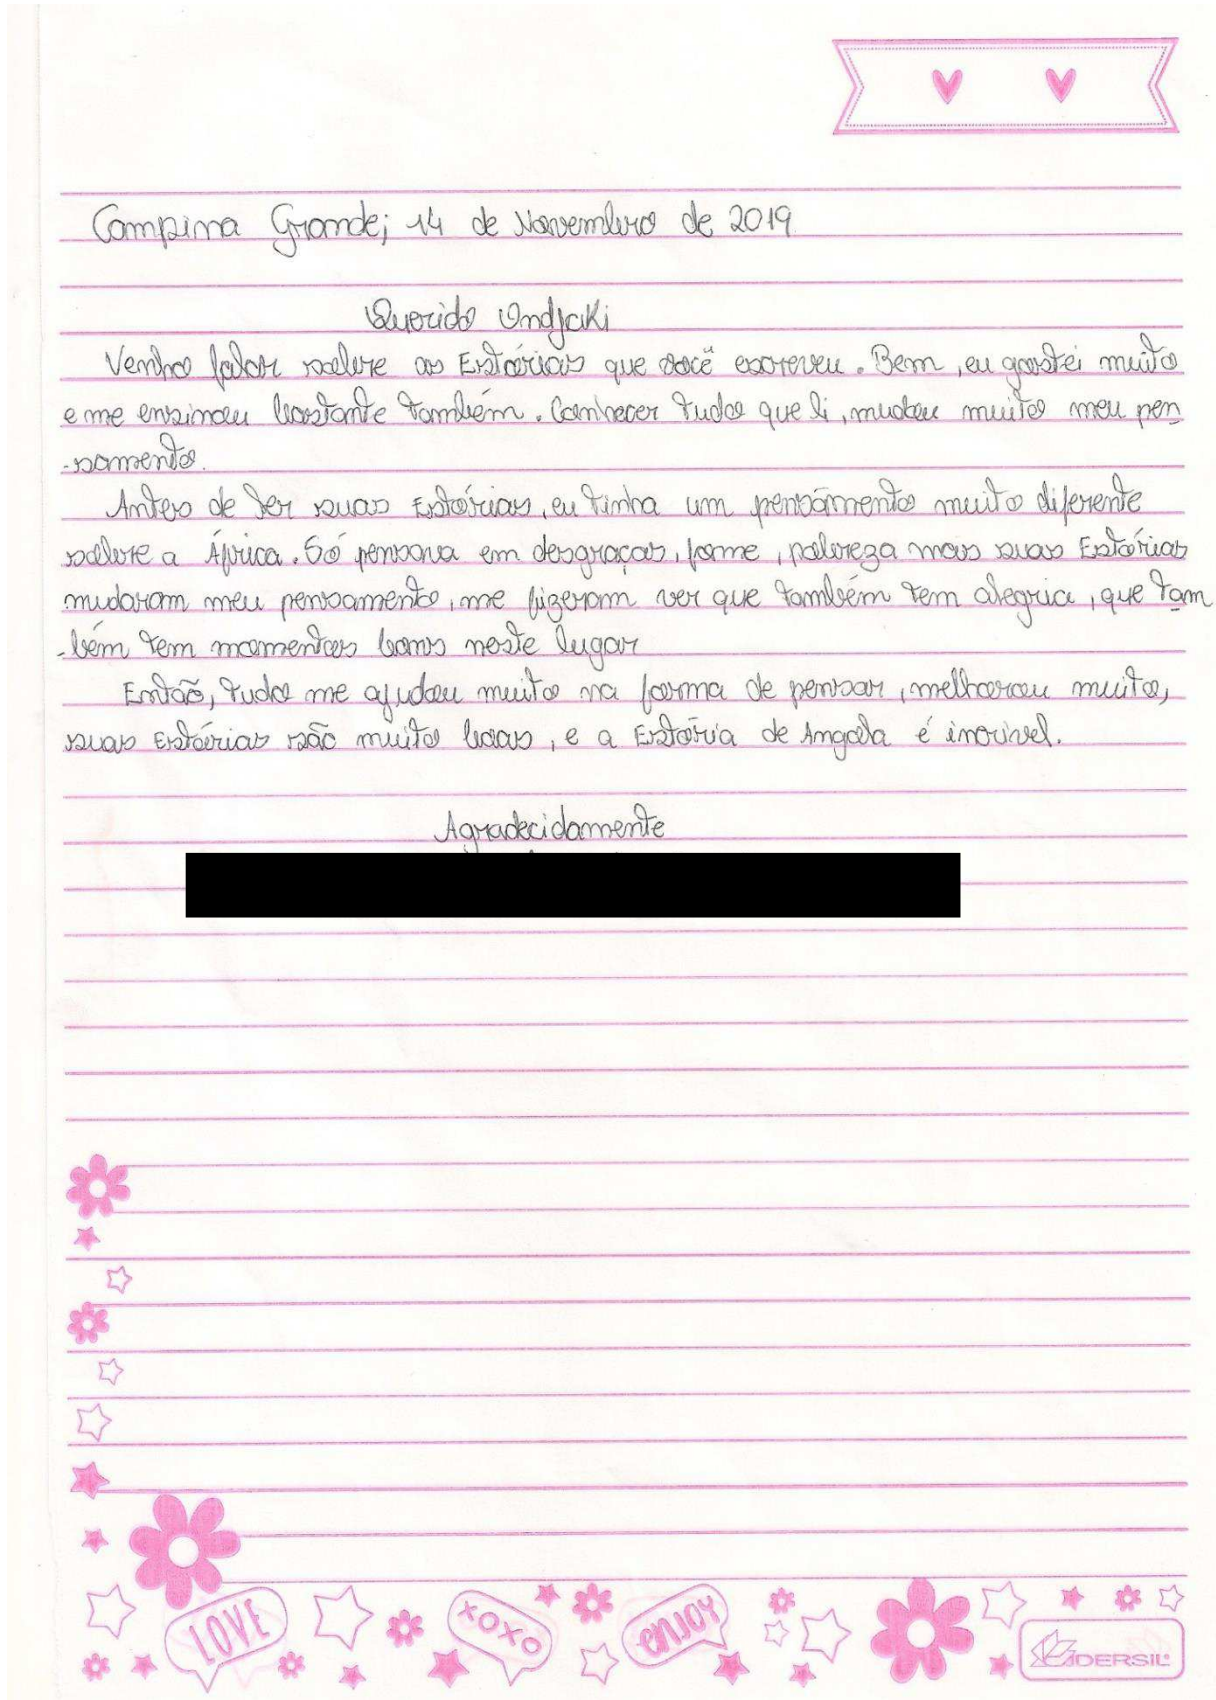 Campina Grande; 14 de Novembro de 2019
Querido Ondjaki
Venho falar sobre as Estórias que você escreveu. Bem, eu gostei muito
e me ensinou bastante também. Conhecer tudo que li, mudou muito meu pen
-samento.
Antes de ler suas Estórias, eu tinha um pensamento muito diferente
sobre a África. Só pensava em desgraças, fome, pobreza mas suas Estórias
mudaram meu pensamento, me fizeram ver que também tem alegria, que tam
-bém tem momentos bons neste lugar
Então, tudo me ajudou muito na forma de pensar, melhorou muito,
suas Estórias são muito boas, e a Estória de Angola é incrivel.
Agradecidamente
LOVE
XOXO
enjoy
DERSIL